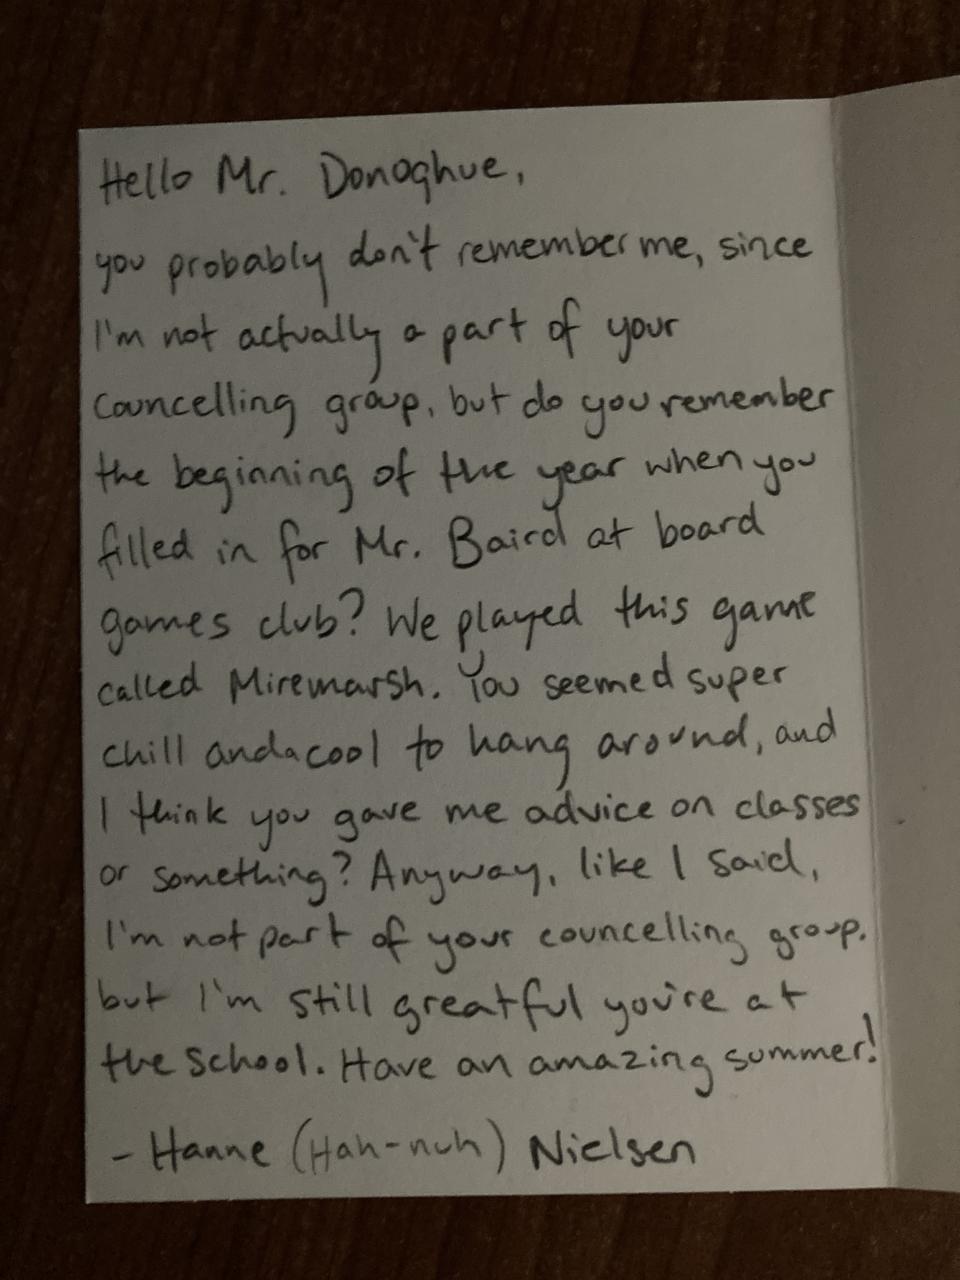 Hello Mr. Donoghue,
you probably don't remember me, since
I'm not actually a part of your
councelling group, but do you remember
the beginning of the year when you
filled in for Mr. Baird at board
games club? We played this game
called Miremarsh. You seemed super
chill and a cool to hang around, and
I think you gave me advice on classes
or something? Anyway, like I said,
I'm not part of your councelling group,
but I'm still greatful you're at
the school. Have an amazing summer!
- Hanne (Hah-nuh) Nielsen